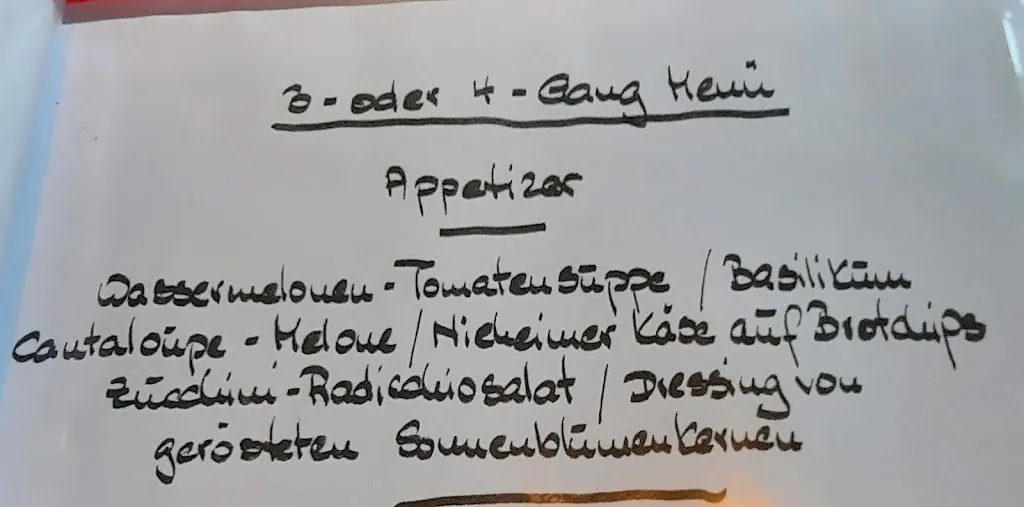 3-oder 4-Gang Menü
Appetizer
Wassermelonen-Tomatensuppe / Basilikum
Cantaloupe-Melone / Nieheimer Käse auf Brotchips
Zucchini-Radicchiosalat / Dressing von
gerösteten Sonnenblumenkernen